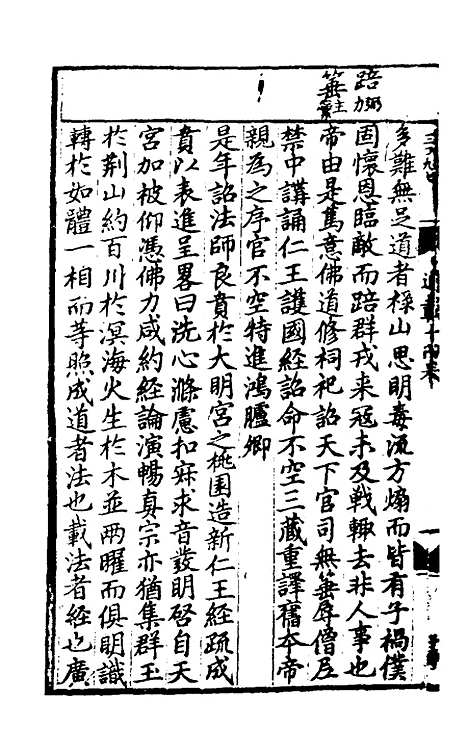 踣㓖
箠主藥
多難無足道者祿山思明毒流方煽而皆有子禍僕
固懷恩臨敵而踣群戎来冦未及戰輙去非人事也
帝由是篤意佛道修祠祀詔天下官司無箠辱僧尼
禁中講誦仁王護國經詔命不空三藏重譯舊本帝
親為之序官不空特進鴻臚卿
是年詔法師良賁於大明宮之桃園造新仁王經疏成
賁以表進呈畧曰洗心滌慮扣寂求音發明啓自天
宮加被仰憑佛力咸約經論演暢真宗亦猶集群玉
於荆山約百川於溟海火生於木並兩曜而俱明識
轉於如體一相而等照成道者法也載法者經也廣